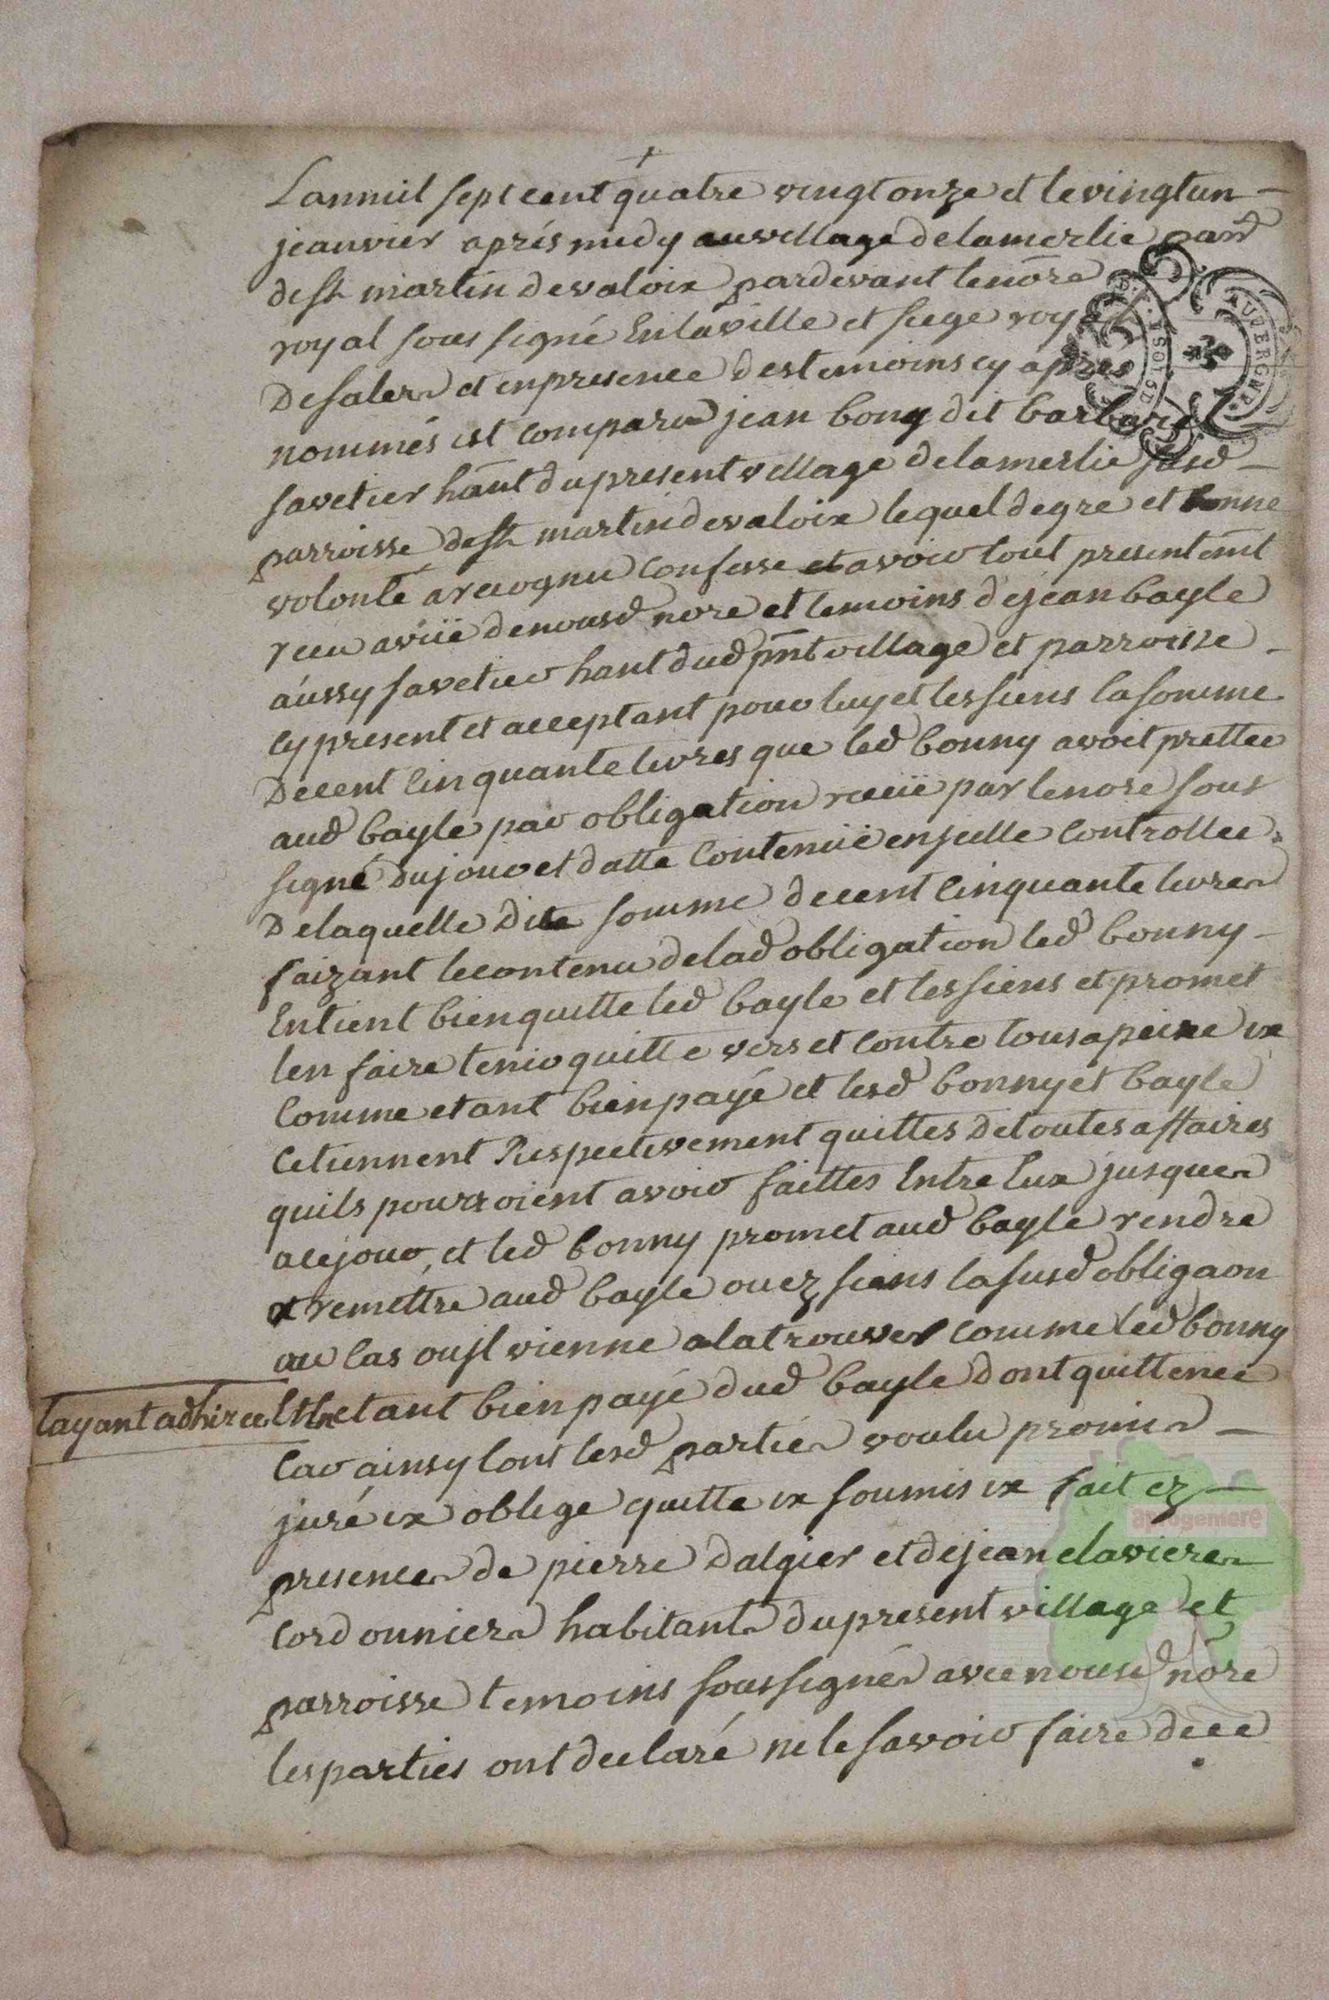 Lanmil sept cent quatre vingt onze et le vingt un
jeanvier aprés midy au village de lamerlie parr
de st martin de valoix pardevant le nore
royal sous signé En la ville et siege roy
De salers et en presence des temoins cy apres
nommés est comparu jean bony dit barbari
savetier hant du present village de lamerlie susd
parroisse de st martin de valoix lequel de gre et bonne
volonté a recognu confesse et avoir tout presentemt
receu a vüe de nousd nore et temoins de jean bayle
aussy savetier hant dud pnt village et parroisse
cy present et acceptant pour luy et les siens la somme
De cent cinquante livres que led bonny avoit prettee
aud bayle par obligation recüe par le nore sous
signé Du jour et datte contenüe en jcelle controllee
De laquelle dite somme de cent cinquante livres
faizant le contenu de lad obligation led bonny
En tient bien quitte led bayle et les siens et promet
len faire tenir quitte vers et contre tous a peine ix
comme etant bien payé et lesd bonny et bayle
ce tiennent Respectivement quittes De toutes affaires
quils pourroient avoir faittes Entre Eux jusques
a ce jour, et led bonny promet aud bayle rendre
et remettre aud bayle ou ez siens la susd obligaon
au cas ou jl vienne a la trouver comme led bonny
layant adhiree et en etant bien payé dud bayle Dont quittence
Car ainsy lont lesd parties voulu promis
juré ix oblige quitte ix soumis ix fait ez
presences de pierre Dalgier et de jean clavieres
cordonniers habitants du present village et
parroisse temoins sous signés avec nousd nore
les parties ont declaré ne le savoir faire de ce
AUVERGNE
aprogemere